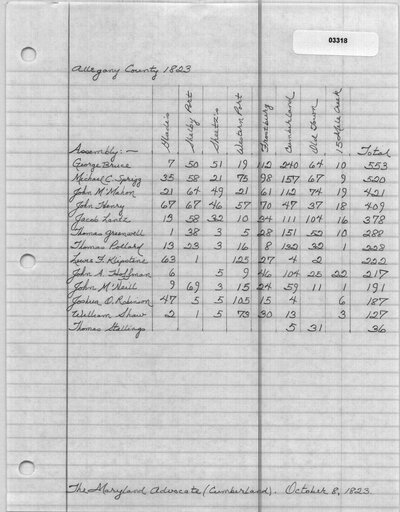 03318
Allegany County 1823
Glade's Selby Port Sheetz's Western Port Frostburg Cumberland Old Town 15 Mile Creek
Assembly:— Total
George Bruce 7 50 51 19 112 240 64 10 553
Michael C. Sprigg 35 58 21 75 98 157 67 9 520
John M'Mahon 21 64 49 21 61 112 74 19 421
John Henry 67 67 46 57 70 47 37 18 409
Jacob Lantz 13 58 32 10 34 111 104 16 378
Thomas Greenwell 1 38 3 5 28 151 52 10 288
Thomas Pollard 13 23 3 16 8 132 32 1 228
Lewis F. Klipstine 63 1 125 27 4 2 222
John A. Hoffman 6 5 9 46 104 25 22 217
John M'Neill 9 69 3 15 24 59 11 1 191
Joshua O. Robinson 47 5 5 105 15 4 6 187
William Shaw 2 1 5 73 30 13 3 127
Thomas Stallings 5 31 36
The Maryland Advocate (Cumberland). October 8, 1823.